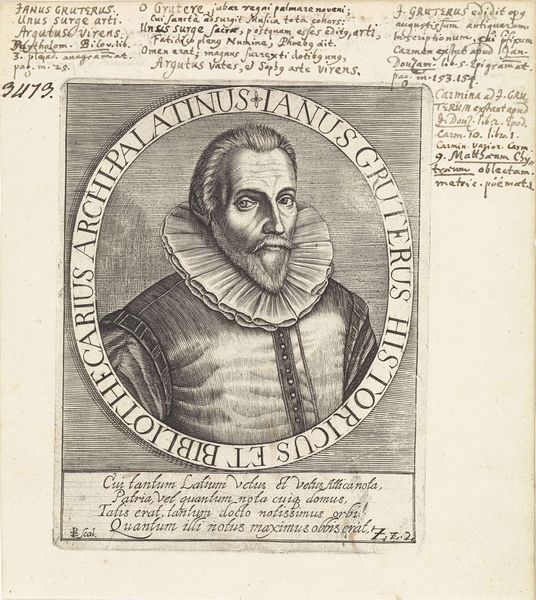 JANUS GRUTERUS.
Unus surge arti.
Argutus Virens.
Bartholom. Bilov. lib.
3. plejad. anagrammat.
pag. m. 25.
O Grutere, jubae regni palmare noveni:
Cui sanctè adsurgit Musica tota cohors:
Unus surge sacræ, postquam esses arti,
Fatidico Numine, Phoebq ait.
Omen erat; magnus surrexti dotibq unq,
Argutus Vates, & Sophq arte virens.
J. GRUTERUS edidit opq
augustissum antiquarum
inscriptionum,
Carmen exstat apud Jan.
Douzam lib. 2. Epigrammat
pag. m. 153. 154.
Carmina ad J. GRU-
TERUM exstant apud
J. Douz. lib. 2. Epod.
carm. 10. lib. 1.
Carmin. varior. carm.
9. Matthæum Chy-
træum oblectam.
metric. poëmats.
3473.
IANUS GRUTERUS HISTORICUS ET BIBLIOTHECARIUS ARCHI-PALATINUS
Cui tantum Latium Vetus et Vetus Attica nota,
Patria vel quantum nota cuiq domus,
Talis erat, tantum docto notissimus orbi.
Quantum illi notus maximus orbis erat,
scal.
Zz. 2